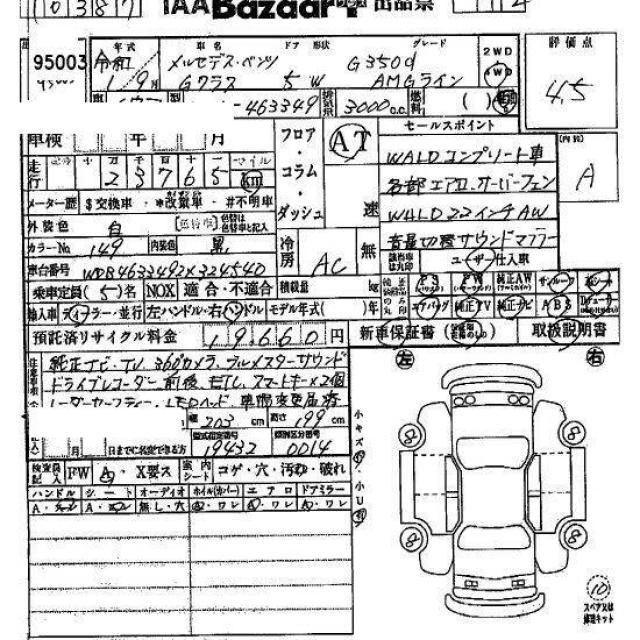 10387 IAA Bazaar 出品票
95003 年式 車名 ドア 形状 グレード 2WD 評価点
令和 1/9月 メルセデス・ベンツ Gクラス 5 W G350d AMGライン 4WD 4.5
-463349 排気量 3000c.c. 燃料 ( )
車検 年 月 フロア・コラム・ダッシュ AT 速 セールスポイント 内装 A
走行 十 万 千 百 十 マイル
23765 km
WALDコンプリート車
各部エアロ.オーバーフェン
メーター歴 $交換車・*改ざん車・#不明車 WALD22インチAW
外装色 白 色替は色替車と記入 音量切替サウンドマフラー
カラーNo 149 内装色 黒 冷房 AC 無 該当車は丸印 ユーザー仕入車
車台番号 WDB4633492X324540
乗車定員(5)名 NOX 適合・不適合 積載量 kg PS PW 純正AW サンルーフ 革シート
輸入車 ディーラー・並行 左ハンドル・右ハンドル モデル年式( )年 エアバッグ 純正TV 純正ナビ ABS
預託済リサイクル料金 19660円 新車保証書 取扱説明書
左 右
注意事項 純正ナビ、TV、360°カメラ、ブルメスターサウンド
ドライブレコーダー前後、ETC、スマートキー×2個
幅 203 cm 高さ 199 cm
型式指定番号 19432 類別区分番号 0014
月 日までに名変できる方
検査員記入 FW A・X要ス 室内シート コゲ・穴・汚れ・破れ
ハンドル シート オーディオ ホイル(カバー) エアロ ドアミラー
A・ A・ 無し・穴 A・ワレ A・ワレ A・ワレ
小キズ 小U
8 8
8 8
10
スペアは修理キット